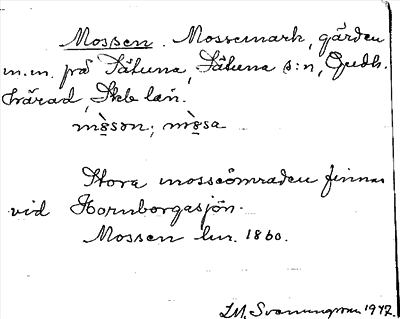 Mossen. Mossemark, gården
m.m. på Sätuna, Sätuna s:n, Gudh.
härad, Skb län.
mòsɔn; mòsa
Stora mosseområden finnas
vid Hornborgasjön.
Mossen lm. 1860.
I.M. Svenningson 1947.